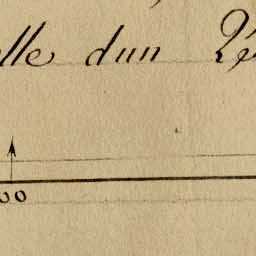 elle dun
00